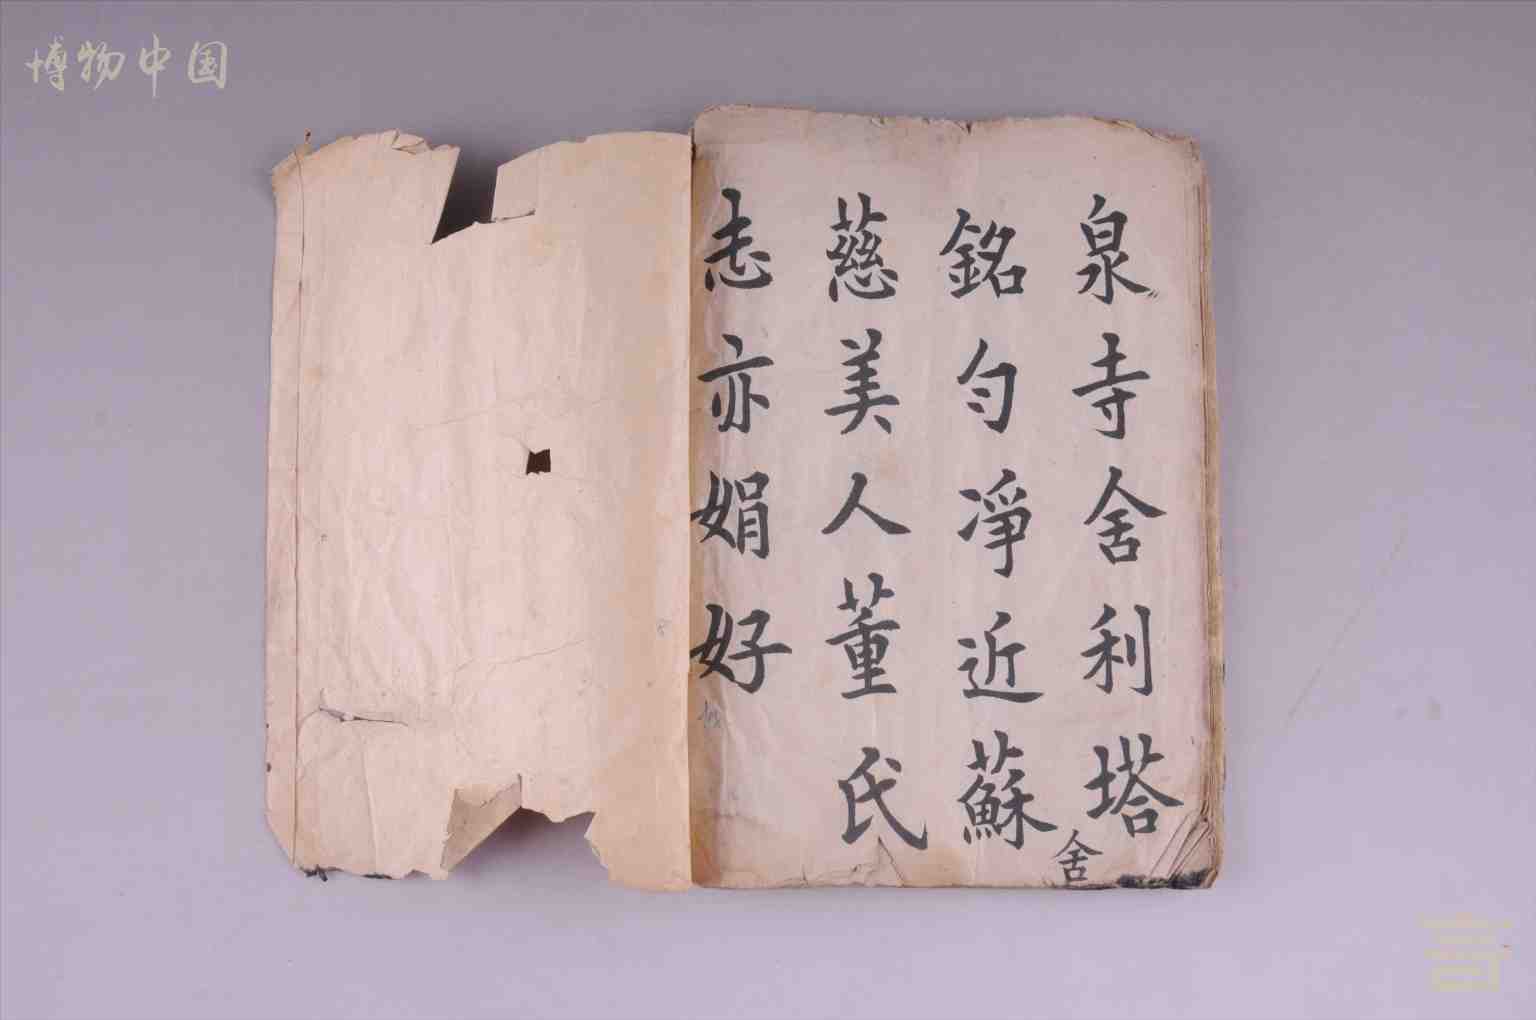 博物中国
泉寺舍利塔
銘勻淨近蘇
慈美人董氏
志亦娟好
舍